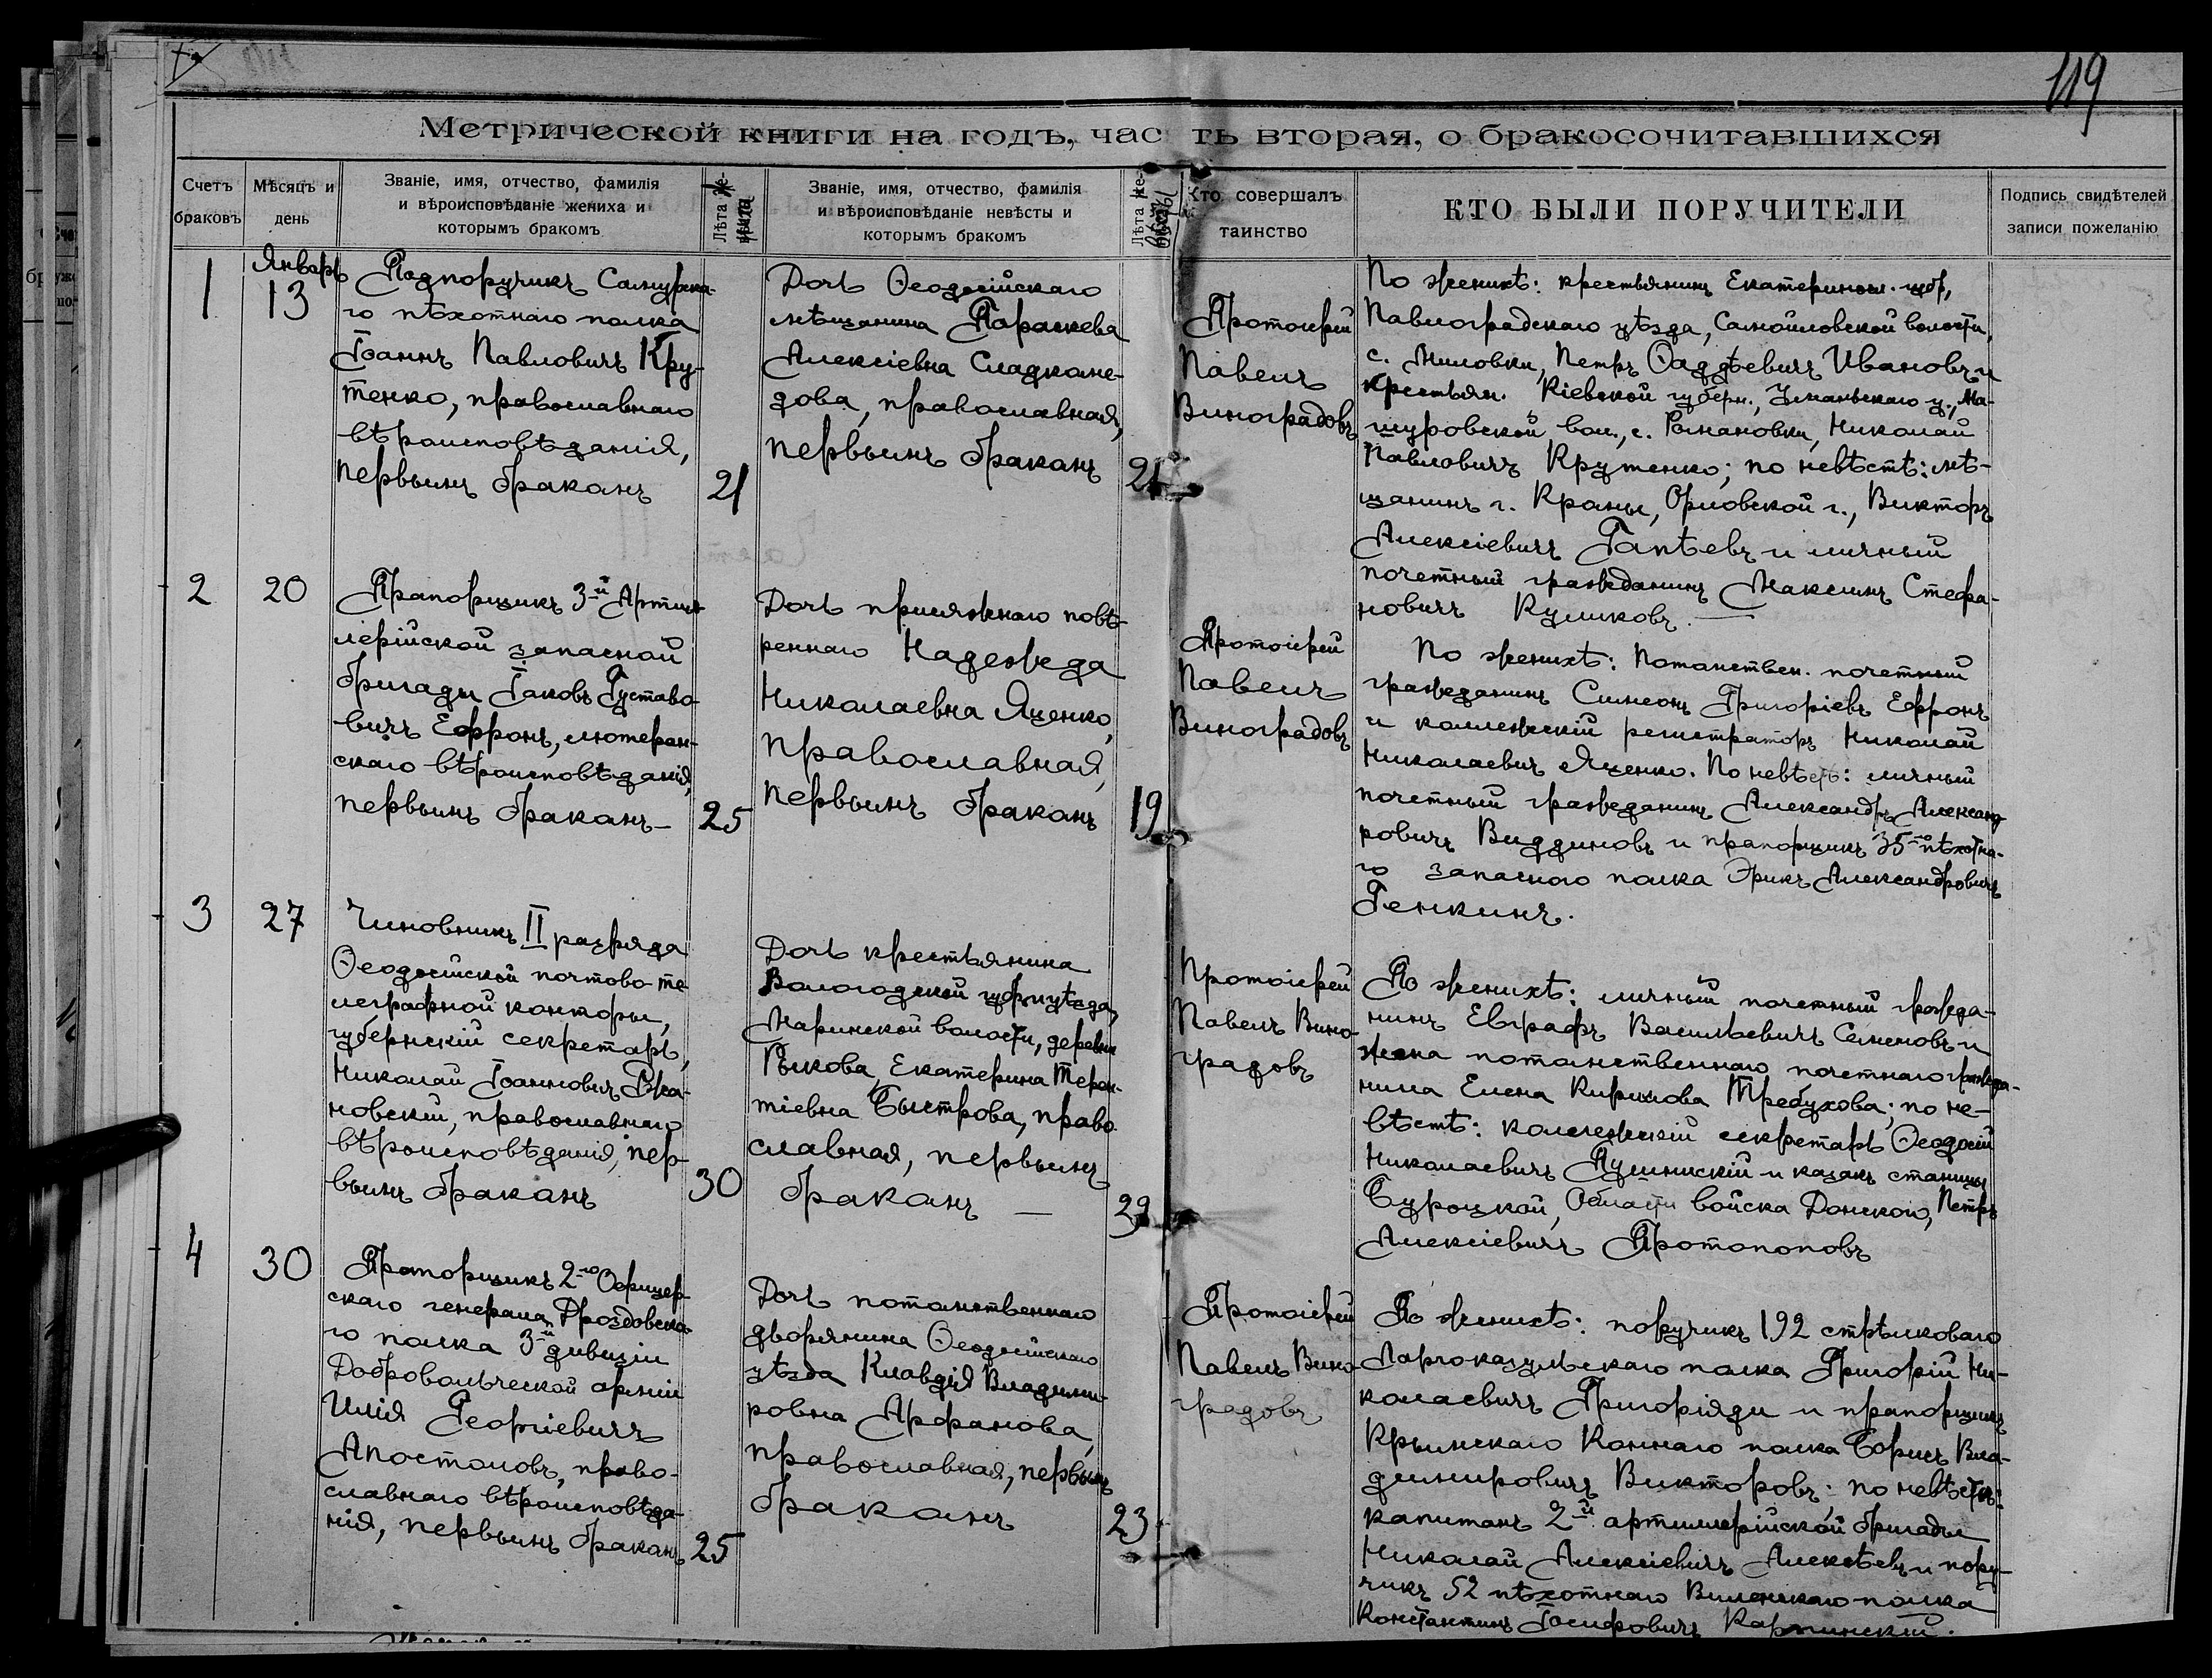 119
Метрической книги на годъ, часть вторая, о бракосочитавшихся
Счетъ браковъ
Мѣсяцъ и день
Званіе, имя, отчество, фамилія
и вѣроисповѣданіе жениха и
которымъ бракомъ
Лѣта же-
ниха
Званіе, имя, отчество, фамилія
и вѣроисповѣданіе невѣсты и
которымъ бракомъ
Лѣта
невѣсты
Кто совершалъ
таинство
КТО БЫЛИ ПОРУЧИТЕЛИ
Подпись свидѣтелей
записи пожеланію
1
Январь
13
Подпоручикъ Самурска-
го пѣхотнаго полка
Іоаннъ Павловичъ Кру-
тенко, православнаго
вѣроисповѣданія,
первымъ бракомъ
21
Дочь Ѳеодосійскаго
мѣщанина Параскева
Алексіевна Сладкоме-
дова, православная,
первымъ бракомъ
21
Протоіерей
Павелъ
Виноградовъ
По женихѣ: крестьянинъ Екатеринос. губ.,
Павлоградскаго уѣзда, Самойловской волости,
с. Миловки, Петръ Ѳаддѣевичъ Ивановъ и
крестьян. Кіевской губерн., Уманьскаго у., Ма-
шуровской вол., с. Романовки, Николай
Павловичъ Крутенко; по невѣстѣ: мѣ-
щанинъ г. Кромы, Орловской г., Викторъ
Алексіевичъ Гапѣевъ и личный
почетный гражданинъ Максимъ Стефа-
новичъ Куликовъ.
2
20
Прапорщикъ 3-й Артил-
лерійской запасной
бригады Іаковъ Густаво-
вичъ Ефронъ, лютеран-
скаго вѣроисповѣданія,
первымъ бракомъ
25
Дочь присяжнаго повѣ-
реннаго Надежда
Николаевна Яценко,
православная,
первымъ бракомъ
19
Протоіерей
Павелъ
Виноградовъ
По женихѣ: Потомствен. почетный
гражданинъ Симеонъ Григоріевъ Ефронъ
и коллежскій регистраторъ Николай
Николаевичъ Яценко. По невѣстѣ: личный
почетный гражданинъ Александръ Александ-
ровичъ Виддиновъ и прапорщикъ 35-го пѣхотна-
го запаснаго полка Эрикъ Александровичъ
Генкинъ.
3
27
Чиновникъ II разряда
Ѳеодосійской почтово те-
леграфной конторы,
губернскій секретарь,
Николай Іоанновичъ
новскій, православнаго
вѣроисповѣданія, пер-
вымъ бракомъ
30
Дочь крестьянина
Вологодской губ. и уѣзда,
Маринской волости, деревни
Рыкова, Екатерина Терен-
тіевна Быстрова, право-
славная, первымъ
бракомъ
29
Протоіерей
Павелъ Вино-
градовъ
По женихѣ: личный почетный гражда-
нинъ Евграфъ Васильевичъ Семеновъ и
жена потомственнаго почетнаго гражда-
нина Елена Кирилова Требухова; по не-
вѣстѣ: коллежскій секретарь Ѳеодосій
Николаевичъ Лушпискій и казакъ станицы
Буроцкой, Области войска Донского, Петръ
Алексіевичъ Протопоповъ
4
30
Прапорщикъ 2-го Офицер-
скаго генерала Дроздовска-
го полка 3-й дивизіи
Добровольческой арміи
Илія Георгіевичъ
Апостоловъ, право-
славнаго вѣроисповѣда-
нія, первымъ бракомъ
25
Дочь потомственнаго
дворянина Ѳеодосійскаго
уѣзда Клавдія Владими-
ровна Арфанова,
православная, первымъ
бракомъ
23
Протоіерей
Павелъ Вино-
градовъ
По женихѣ: поручикъ 192 стрѣлковаго
Ларгокагульскаго полка Григорій Ни-
колаевичъ Григоріяди и прапорщикъ
Крымскаго Коннаго полка Борисъ Вла-
димировичъ Викторовъ; по невѣстѣ:
капитанъ 2-й артиллерійской бригады
Николай Алексіевичъ Алексѣевъ и пору-
чикъ 52 пѣхотнаго Виленскаго полка
Константинъ Іосифовичъ Карпинскій.